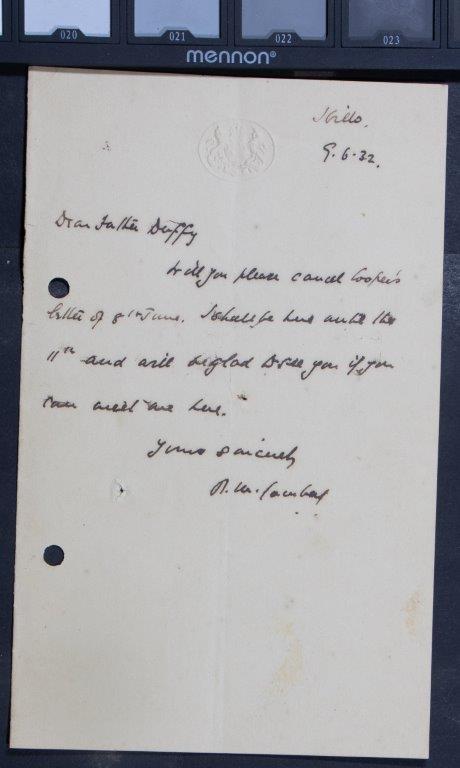 020 021 022 023
mennon®
Ibillo.
9.6.32.
Dear Father Duffy
Will you please cancel Cooper's
letter of 8th June. I shall be here until the
11th and will be glad to see you if you
can meet me here.
Yours sincerely